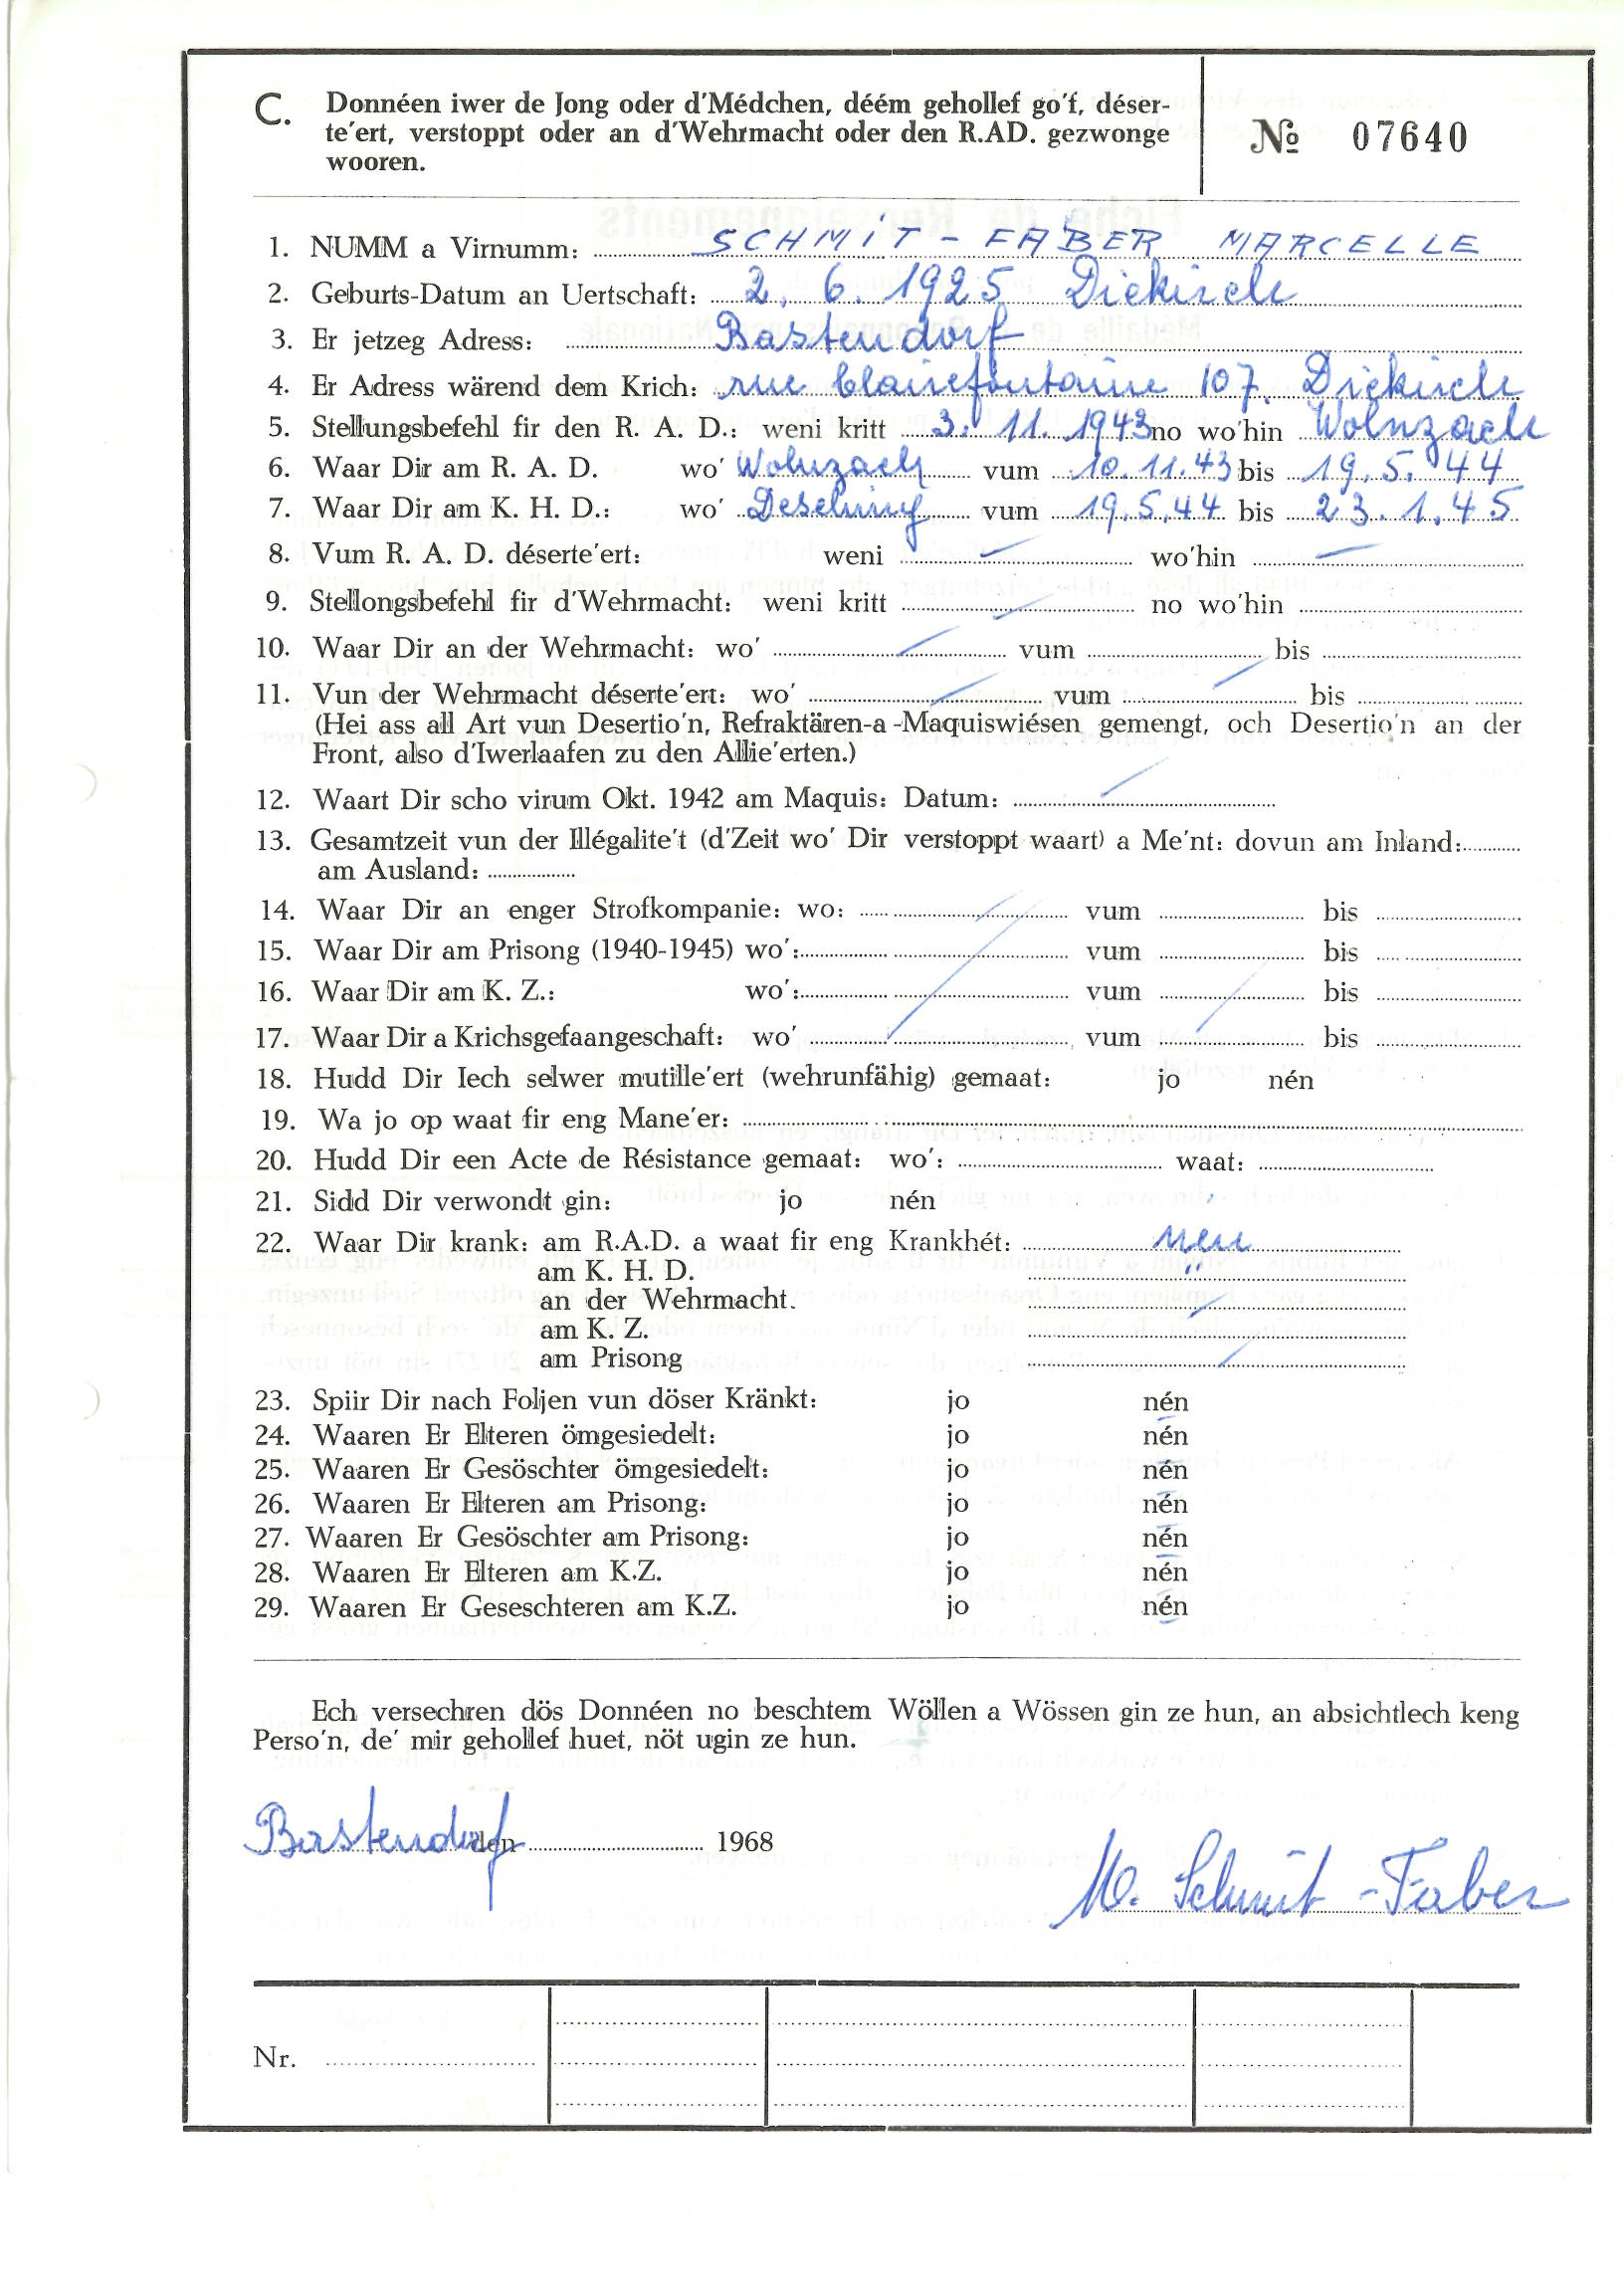 C. Donnéen iwer de Jong oder d'Médchen, déém gehollef go'f, déser-
te'ert, verstoppt oder an d'Wehrmacht oder den R.AD. gezwonge
wooren.
№ 07640
1. NUMM a Virnumm: SCHMIT - FABER MARCELLE
2. Geburts-Datum an Uertschaft: 2. 6. 1925 Diekirch
3. Er jetzeg Adress: Bastendorf
4. Er Adress wärend dem Krich: rue Clairefontaine 107. Diekirch
5. Stellungsbefehl fir den R. A. D.: weni kritt 3. 11. 1943 no wo'hin Wolnzach
6. Waar Dir am R. A. D. wo' Wolnzach vum 10.11.43 bis 19.5.44
7. Waar Dir am K. H. D.: wo' Desching vum 19.5.44 bis 23.1.45
8. Vum R. A. D. déserte'ert: weni wo'hin
9. Stellongsbefehl fir d'Wehrmacht: weni kritt no wo'hin
10. Waar Dir an der Wehrmacht: wo' vum bis
11. Vun der Wehrmacht déserte'ert: wo' vum bis
(Hei ass all Art vun Desertio'n, Refraktären-a-Maquiswiésen gemengt, och Desertio'n an der
Front, also d'Iwerlaafen zu den Allie'erten.)
12. Waart Dir scho virum Okt. 1942 am Maquis: Datum:
13. Gesamtzeit vun der Illégalite't (d'Zeit wo' Dir verstoppt waart) a Me'nt: dovun am Inland:
am Ausland:
14. Waar Dir an enger Strofkompanie: wo: vum bis
15. Waar Dir am Prisong (1940-1945) wo': vum bis
16. Waar Dir am K. Z.: wo': vum bis
17. Waar Dir a Krichsgefaangeschaft: wo' vum bis
18. Hudd Dir Iech selwer mutille'ert (wehrunfähig) gemaat: jo nén
19. Wa jo op waat fir eng Mane'er:
20. Hudd Dir een Acte de Résistance gemaat: wo': waat:
21. Sidd Dir verwondt gin: jo nén
22. Waar Dir krank: am R.A.D. a waat fir eng Krankhét: nén
am K. H. D. "
an der Wehrmacht.
am K. Z.
am Prisong
23. Spiir Dir nach Foljen vun döser Kränkt: jo nén
24. Waaren Er Elteren ömgesiedelt: jo nén
25. Waaren Er Gesöschter ömgesiedelt: jo nén
26. Waaren Er Elteren am Prisong: jo nén
27. Waaren Er Gesöschter am Prisong: jo nén
28. Waaren Er Elteren am K.Z. jo nén
29. Waaren Er Geseschteren am K.Z. jo nén
Ech versechren dös Donnéen no beschtem Wöllen a Wössen gin ze hun, an absichtlech keng
Perso'n, de' mir gehollef huet, nöt ugin ze hun.
Bastendorf den 1968
M. Schmit - Faber
Nr.